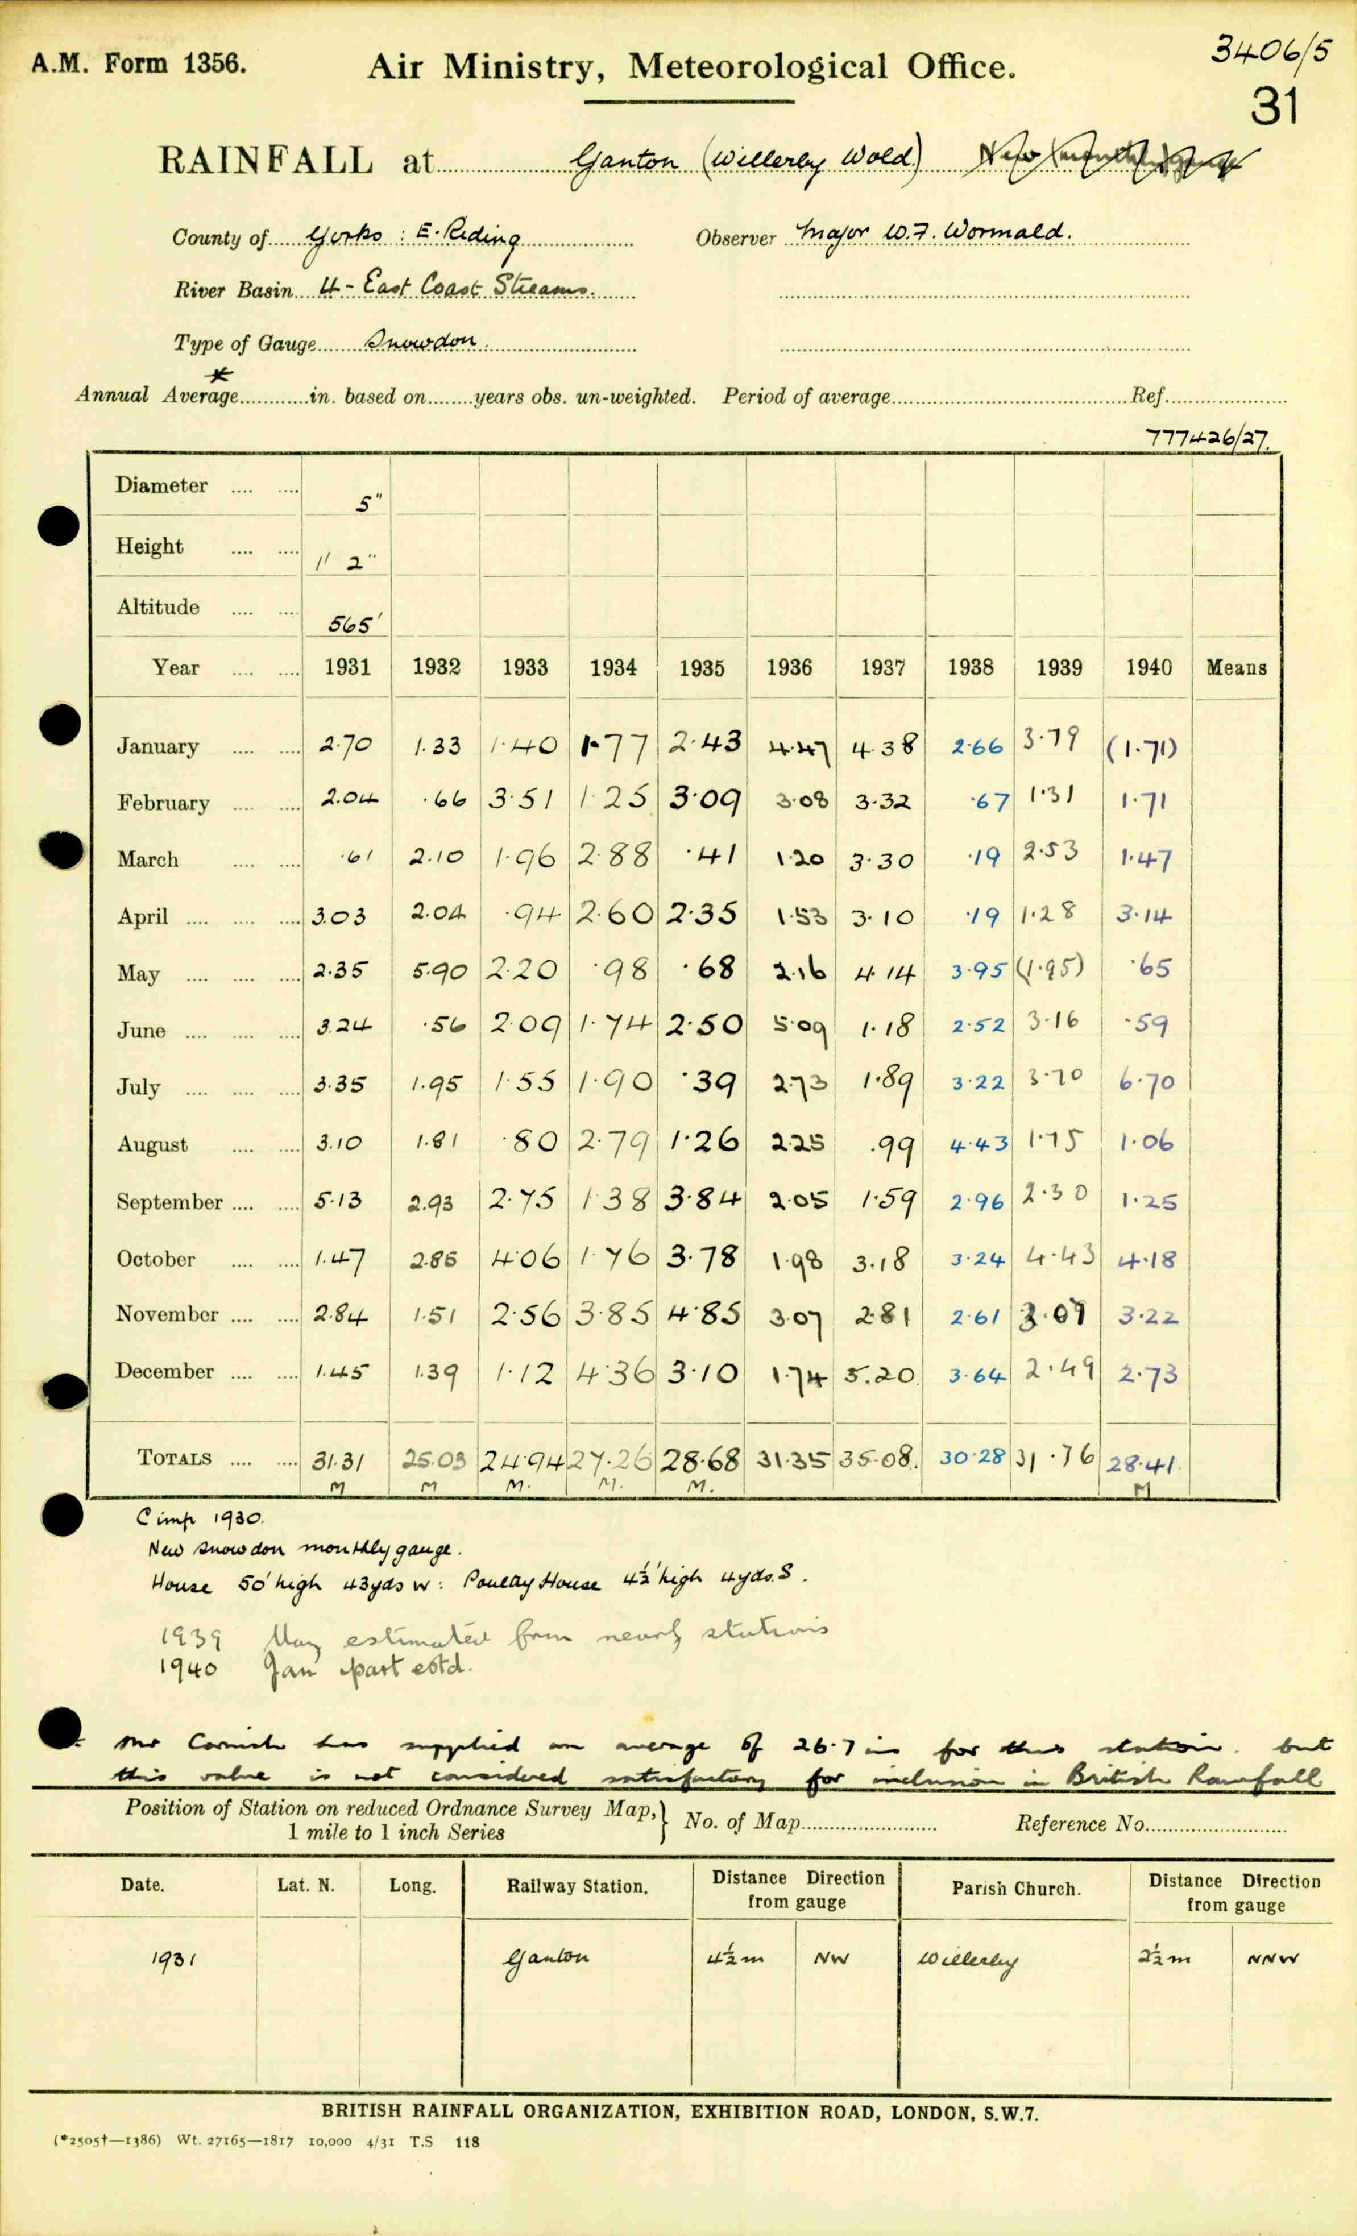 A.M. Form 1356.
Air Ministry, Meteorological Office.
3406/5
31
RAINFALL at Ganton (Willerby Wold) New (monthly) gauge
County of Yorks : E. Riding
Observer Major W.F. Wormald.
River Basin 4 - East Coast Streams.
Type of Gauge Snowdon.
*
Annual Average in. based on years obs. un-weighted. Period of average Ref.
777426/27.
Diameter 5"
Height 1' 2"
Altitude 565'
Year 1931 1932 1933 1934 1935 1936 1937 1938 1939 1940 Means
January 2.70 1.33 1.40 1.77 2.43 4.47 4.38 2.66 3.79 (1.71)
February 2.04 .66 3.51 1.25 3.09 3.08 3.32 .67 1.31 1.71
March .61 2.10 1.96 2.88 .41 1.20 3.30 .19 2.53 1.47
April 3.03 2.04 .94 2.60 2.35 1.53 3.10 .19 1.28 3.14
May 2.35 5.90 2.20 .98 .68 2.16 4.14 3.95 (1.95) .65
June 3.24 .56 2.09 1.74 2.50 5.09 1.18 2.52 3.16 .59
July 3.35 1.95 1.55 1.90 .39 2.73 1.89 3.22 3.70 6.70
August 3.10 1.81 .80 2.79 1.26 2.25 .99 4.43 1.75 1.06
September 5.13 2.93 2.75 1.38 3.84 2.05 1.59 2.96 2.30 1.25
October 1.47 2.85 4.06 1.76 3.78 1.98 3.18 3.24 4.43 4.18
November 2.84 1.51 2.56 3.85 4.85 3.07 2.81 2.61 3.07 3.22
December 1.45 1.39 1.12 4.36 3.10 1.74 5.20 3.64 2.49 2.73
TOTALS 31.31 25.03 24.94 27.26 28.68 31.35 35.08. 30.28 31.76 28.41
M M M. M. M. M
C imp 1930.
New Snowdon monthly gauge.
House 50' high 43yds W : Poultry House 4½' high 4yds. S.
1939 May estimated from nearby stations
1940 Jan part estd.
Mr Cornish has supplied an average of 26.7 in for this station. but
this value is not considered satisfactory for inclusion in British Rainfall
Position of Station on reduced Ordnance Survey Map, } No. of Map Reference No.
1 mile to 1 inch Series
Date. Lat. N. Long. Railway Station. Distance Direction from gauge Parish Church. Distance Direction from gauge
1931 Ganton 4½ m NW Willerby 2½ m NNW
BRITISH RAINFALL ORGANIZATION, EXHIBITION ROAD, LONDON, S.W.7.
(*2505†—1386) Wt. 27165—1817 10,000 4/31 T.S 118